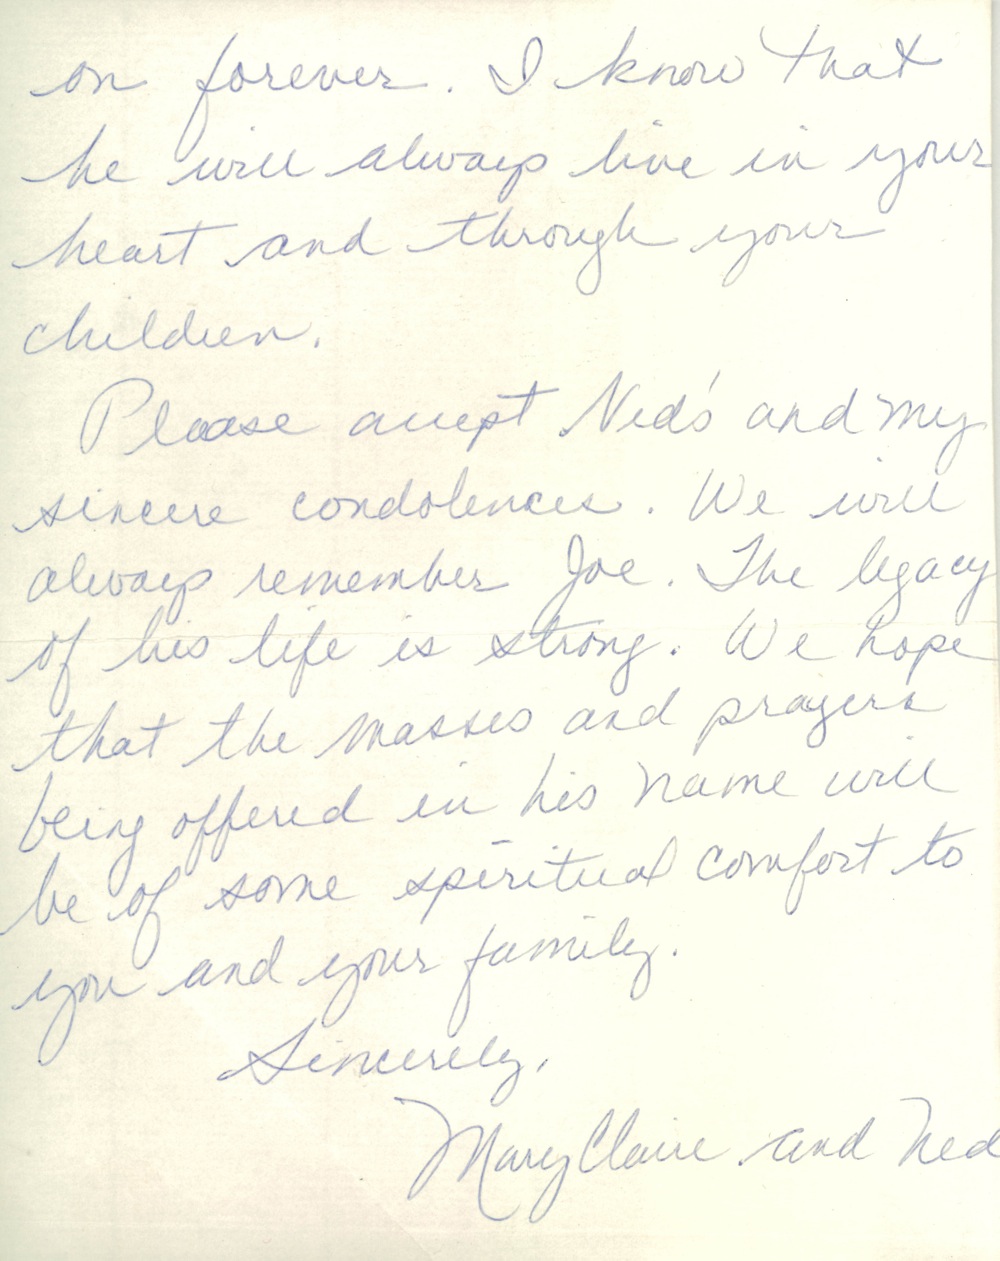 on forever. I know that
he will always live in your
heart and through your
children.
Please accept Ned's and my
sincere condolences. We will
always remember Joe. The legacy
of his life is strong. We hope
that the masses and prayers
being offered in his name will
be of some spiritual comfort to
you and your family.
Sincerely,
Mary Claire and Ned